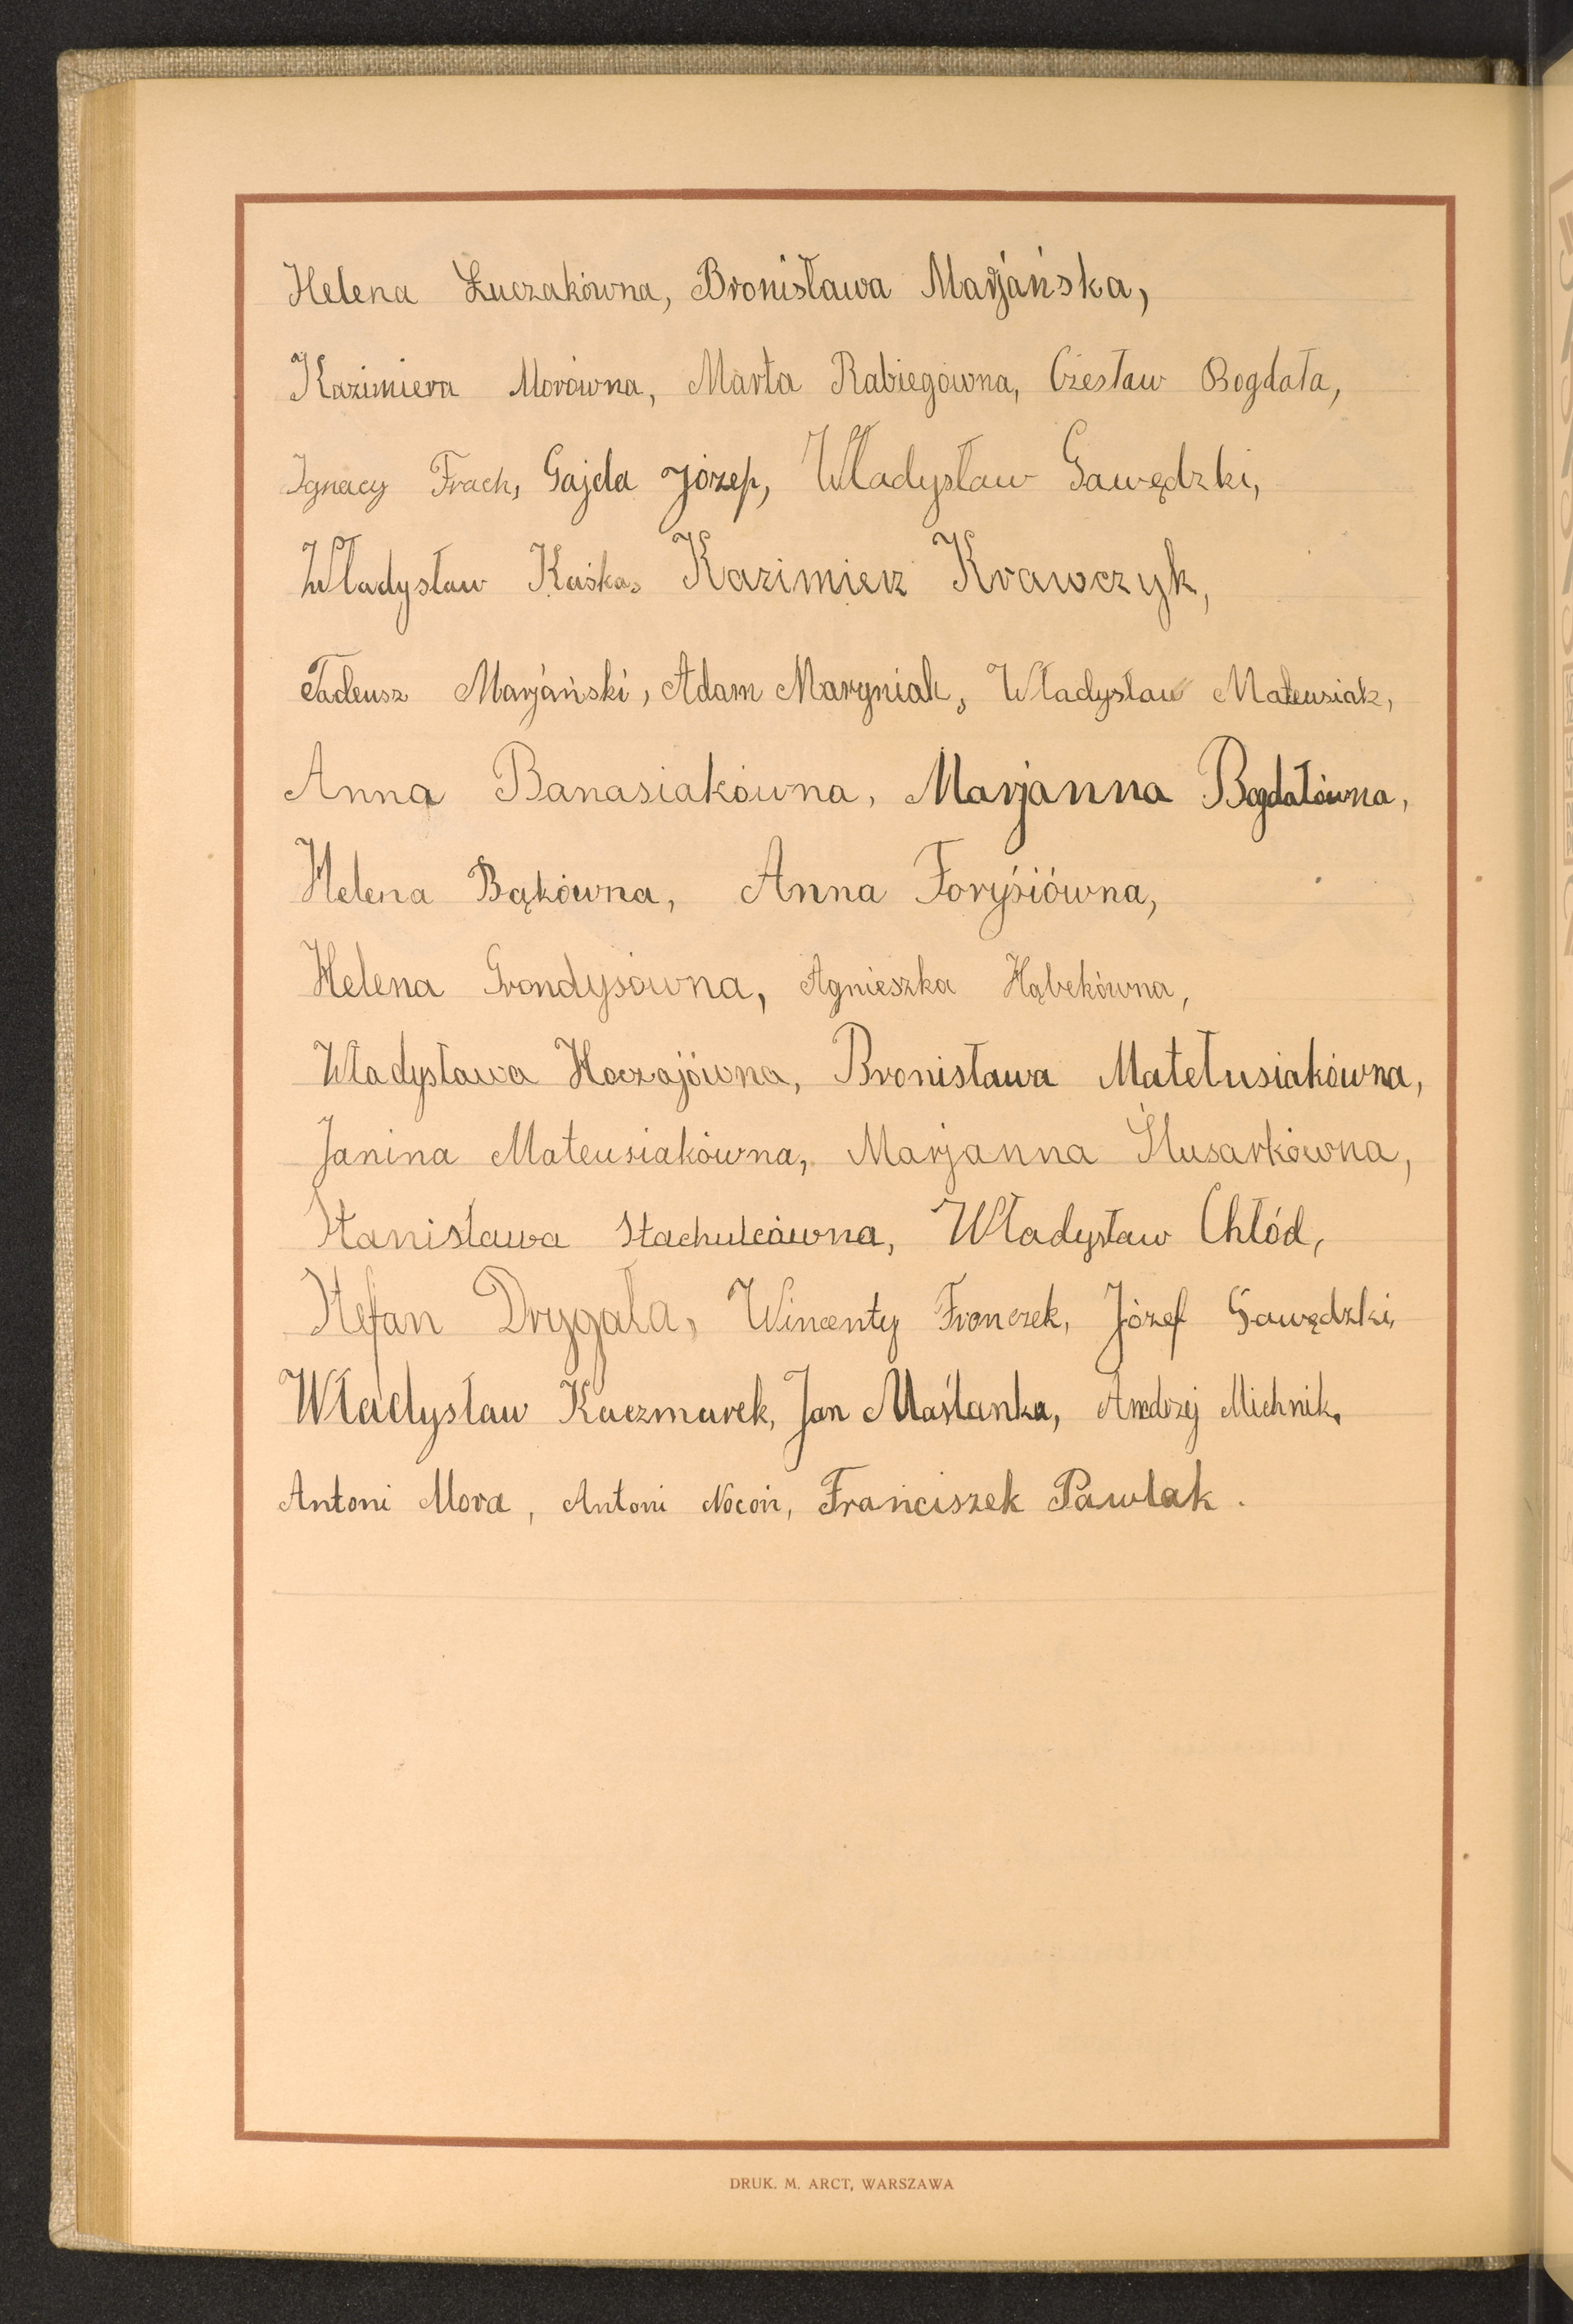 Helena Łuczakówna, Bronisława Marjańska,
Kazimiera Morówna, Marta Rabiegówna, Czesław Bogdała,
Ignacy Frach, Gajda Józep, Władysław Gawędzki,
Władysław Kaśka, Kazimierz Krawczyk,
Tadeusz Marjański, Adam Maryniak, Władysław Mateusiak,
Anna Banasiakówna, Marjanna Bogdałówna,
Helena Bąkówna, Anna Foryśiówna,
Helena Grondysówna, Agnieszka Hąbekówna,
Władysława Koczajówna, Bronisława Matełusiakówna,
Janina Mateusiakówna, Marjanna Ślusarkówna,
Stanisława Stachulcówna, Władysław Chłód,
Stefan Drygała, Wincenty Fronczek, Józef Gawędzki,
Władysław Kaczmarek, Jan Maślanka, Andrzej Michnik,
Antoni Mora, Antoni Nocoń, Franciszek Pawlak.
DRUK. M. ARCT, WARSZAWA